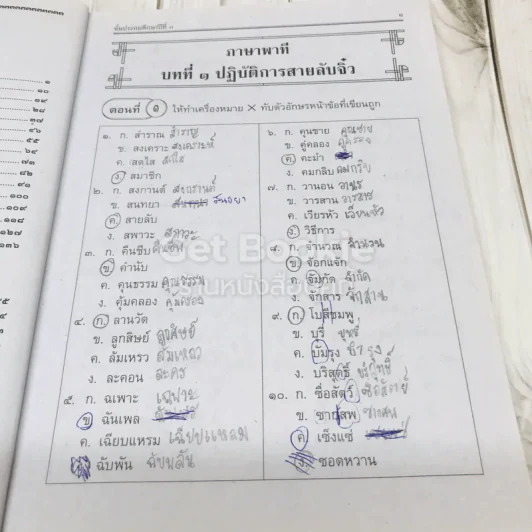 ชั้นประถมศึกษาปีที่ ๓
๑
ภาษาพาที
บทที่ ๑ ปฏิบัติการสายลับจิ๋ว
ตอนที่ ๑ ให้ทำเครื่องหมาย × ทับตัวอักษรหน้าข้อที่เขียนถูก
๑. ก. สำราณ สำราญ
ข. สงเคราะ สงเคราะห์
ค. สดไส สดใส
ง. สมาชิก
๒. ก. สงกานต์ สงกรานต์
ข. สนทยา สนธยา
ค. สายลับ
ง. สพาวะ สภาวะ
๓. ก. คืนชีบ คืนชีพ
ข. คำนับ
ค. คูนธรรม คุณธรรม
ง. คุ้มคลอง คุ้มครอง
๔. ก. ลานวัด
ข. ลูกสิษย์ ลูกศิษย์
ค. ล้มเหรว ล้มเหลว
ง. ละคอน ละคร
๕. ก. ฉเพาะ เฉพาะ
ข. ฉันเพล
ค. เฉียบแหรม เฉียบแหลม
ง. ฉับพัน ฉับพลัน
๖. ก. คุนชาย คุณชาย
ข. คู่คลอง
ค. คะมำ
ง. คมกลิบ คมกริบ
๗. ก. วานอน วานร
ข. วารสาน วารสาร
ค. เวียรหัว เวียนหัว
ง. วิธีการ
๘. ก. จำนวณ จำนวน
ข. จ้อกแจ้ก
ค. จัมกัด จำกัด
ง. จักสาร จักสาน
๙. ก. โบสีชมพู
ข. บุรี่ บุหรี่
ค. บัมรุง บำรุง
ง. บริสุดธิ์ บริสุทธิ์
๑๐. ก. ซื่อสัตว์ ซื่อสัตย์
ข. ซายสพ ซากศพ
ค. เซ็งแซ่
ง. ซอดหวาน
Get Bonnie
ร้านหนังสือออนไลน์